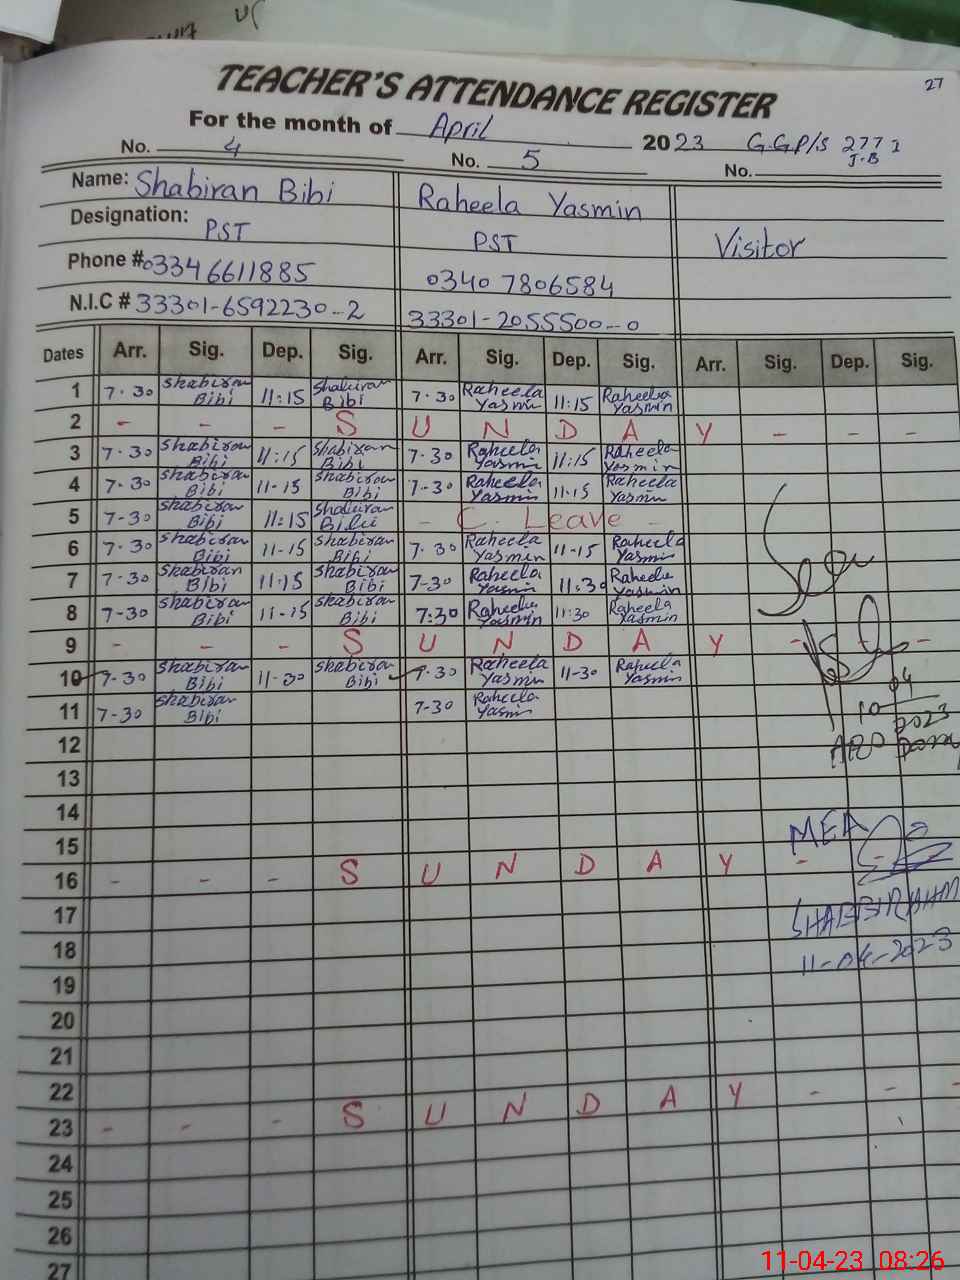 27
TEACHER'S ATTENDANCE REGISTER
For the month of April 2023 G.G.P/S 277 J.B
No. 4 No. 5 No.
Name: Shabiran Bibi Raheela Yasmin
Designation: PST PST Visitor
Phone # 03346611885 0340 7806584
N.I.C # 33301-6592230-2 33301-2055500-0
Dates Arr. Sig. Dep. Sig. Arr. Sig. Dep. Sig. Arr. Sig. Dep. Sig.
1 7.30 Shabiran Bibi 11:15 Shabiran Bibi 7.30 Raheela Yasmin 11:15 Raheela Yasmin
2 - - - S U N D A Y - - -
3 7.30 Shabiran Bibi 11:15 Shabiran Bibi 7.30 Raheela Yasmin 11:15 Raheela Yasmin
4 7.30 Shabiran Bibi 11-15 Shabiran Bibi 7-30 Raheela Yasmin 11.15 Raheela Yasmin
5 7-30 Shabiran Bibi 11:15 Shabiran Bibi - C. Leave -
6 7.30 Shabiran Bibi 11-15 Shabiran Bibi 7.30 Raheela Yasmin 11-15 Raheela Yasmin
7 7-30 Shabiran Bibi 11.15 Shabiran Bibi 7-30 Raheela Yasmin 11.30 Raheela Yasmin
8 7-30 Shabiran Bibi 11-15 Shabiran Bibi 7:30 Raheela Yasmin 11:30 Raheela Yasmin
9 - - - S U N D A Y - - -
10 7-30 Shabiran Bibi 11-30 Shabiran Bibi 7.30 Raheela Yasmin 11-30 Raheela Yasmin
11 7-30 Shabiran Bibi 7-30 Raheela Yasmin
10 04 2023
12
13
14
15
MEA
16 - - - S U N D A Y - -
17
18
11-04-2023
19
20
21
22
23 - - - S U N D A Y - - -
24
25
26
27
11-04-23 08:26